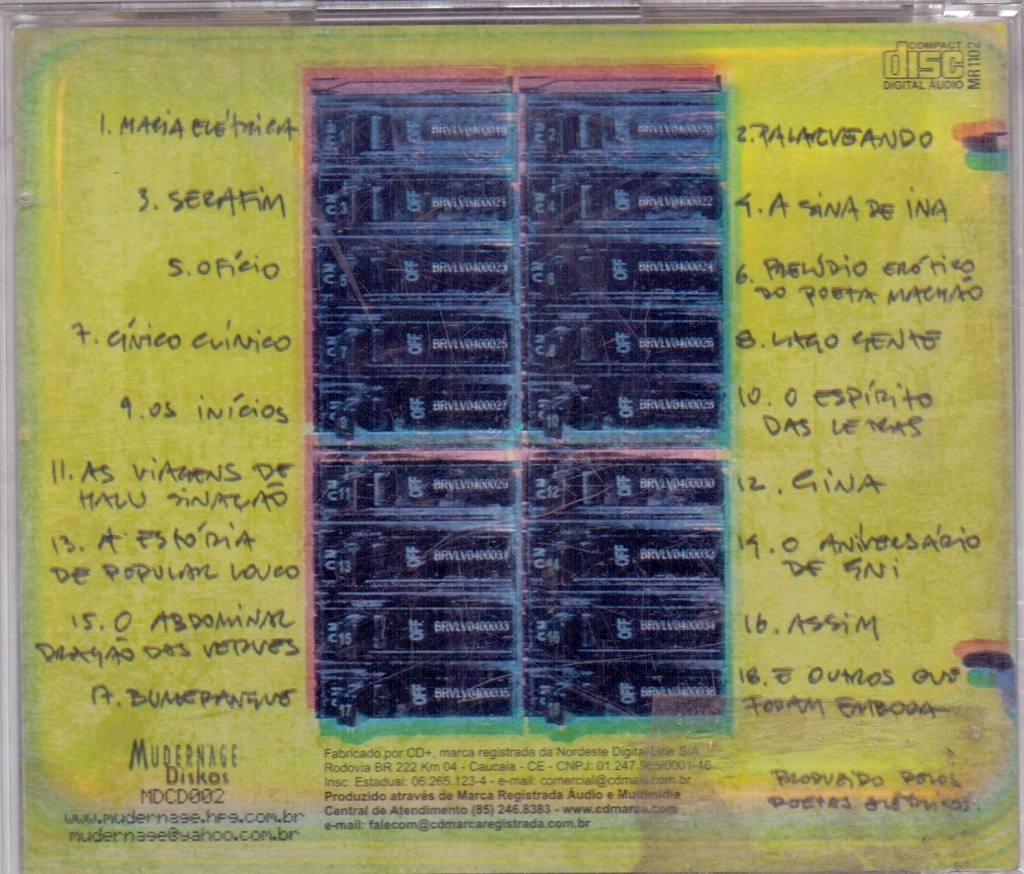 COMPACT
disc
DIGITAL AUDIO
MR1102
1. MAGIA ELÉTRICA
2. PALAKVEANDO
3. SERAFIM
4. A SINA DE INA
5. OFÍCIO
6. PRELÚDIO ERÓTICO
DO POETA MACHÃO
7. CÍNICO CLÍNICO
8. LAGO GENTE
9. OS INÍCIOS
10. O ESPÍRITO
DAS LETRAS
11. AS VIAGENS DE
HALU SINAÇÃO
12. GINA
13. A ESTÓRIA
DE POPULAR LOUCO
14. O ANIVERSÁRIO
DE GNI
15. O ABDOMINAL
DRAGÃO DAS VERVES
16. ASSIM
17. BUMERANGUE
18. E OUTROS QUE
FORAM EMBORA
2 OFF BRVLV0400019
2 OFF BRVLV0400020
3 OFF BRVLV0400021
4 OFF BRVLV0400022
5 OFF BRVLV0400023
6 OFF BRVLV0400024
7 OFF BRVLV0400025
8 OFF BRVLV0400026
9 OFF BRVLV0400027
10 OFF BRVLV0400028
11 OFF BRVLV0400029
12 OFF BRVLV0400030
13 OFF BRVLV0400031
14 OFF BRVLV0400032
15 OFF BRVLV0400033
16 OFF BRVLV0400034
17 OFF BRVLV0400035
18 OFF BRVLV0400036
MUDERNAGE
Diskos
MDCD002
www.mudernage.hpg.com.br
mudernage@yahoo.com.br
Fabricado por CD+, marca registrada da Nordeste Digital Line S/A
Rodovia BR 222 Km 04 - Caucaia - CE - CNPJ: 01.247.965/0001-46
Insc. Estadual: 06.265.123-4 - e-mail: comercial@cdmais.com.br
Produzido através de Marca Registrada Áudio e Multimídia
Central de Atendimento (85) 246.8383 - www.cdmarca.com
e-mail: falecom@cdmarcaregistrada.com.br
PRODUZIDO PELOS
POETAS ELÉTRICOS.